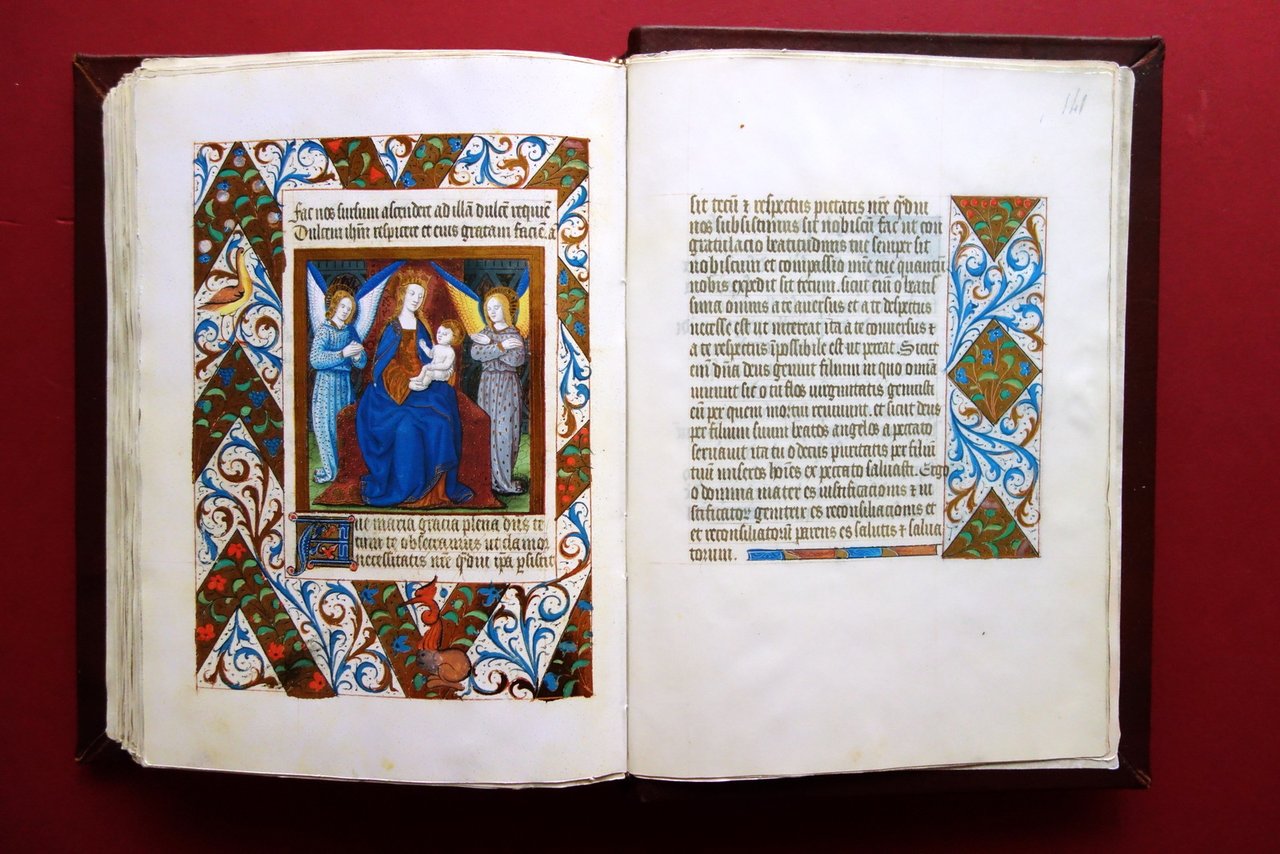 Fac nos sursum ascendere ad illã dulcẽ requiẽ
Dulcem ihm̃ respicere et eius gratam faciẽ a
Aue maria gracia plena dñs te
cum te obsecramus ut da mo
necessitatis nr̃e qñdiu ipa ꝑsistit
sit tecũ & respectus pietatis nr̃e qñdiu
nos subsistimus sit nobiscũ fac ut con
gratulacio beatitudinis tue semper sit
nobiscum et compassio miserie tue quantũ
nobis expedit sit tecum. Sicut eni o beatis
sima omnis a te auersus et a te despectus
necesse est ut intereat ita a te conuersus &
a te respectus ĩpossibile est ut pereat. Sicut
eni dñs deus genuit filium in quo omia
uiuunt sic o tu flos uirginitatis genuisti
eũ per quem mortui reuiuunt. et sicut deus
per filium suum beatos angelos a peccato
seruauit ita tu o decus puritatis per filiũ
tuum miseros hoĩes ex peccato saluasti. Ergo
o domina mater es iustificacionis & iu
stificator genitrix es reconsiliacionis et
et reconsiliatorum parens es salutis & salua
torum.